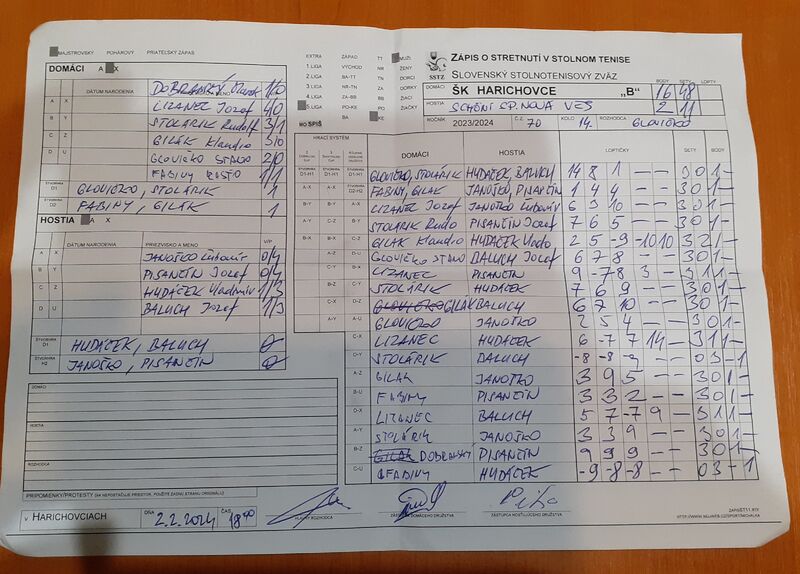 MAJSTROVSKÝ POHÁROVÝ PRIATEĽSKÝ ZÁPAS
ZÁPIS O STRETNUTÍ V STOLNOM TENISE
SSTZ SLOVENSKÝ STOLNOTENISOVÝ ZVÄZ
EXTRA ZÁPAD TT MUŽI
1.LIGA VÝCHOD NR ŽENY
2.LIGA BA-TT TN DORCI
3.LIGA NR-TN ZA DORKY
4.LIGA ZA-BB BB ŽIACI
5.LIGA PO-KE PO ŽIAČKY
BA KE
MO SPIŠ
DOMÁCI ŠK HARICHOVCE „B" BODY 16 SETY 48 LOPTY
HOSTIA SCHÖNI SP. NOVÁ VES 2 11
ROČNÍK 2023/2024 Č.Z. 70 KOLO 14. ROZHODCA GLOVIČKO
DOMÁCI A X
DÁTUM NARODENIA
DOBRANSKÝ 1/0
A X LIZANEC Jozef 4/0
B Y STOLÁRIK Rudolf 3/1
C Z GILÁK Klaudio 5/0
D U GLOVIČKO STANO 2/0
FABINY 1/1
ŠTVORHRA D1 GLOVIČKO, STOLÁRIK 1
ŠTVORHRA D2 FABINY, GILÁK 1
HOSTIA A X
DÁTUM NARODENIA PRIEZVISKO A MENO V/P
A X JANOŠKO Ľubomír 0/4
B Y PISANČIN Jozef 0/4
C Z HUDÁČEK Vladimír 1/3
D U BALUCH Jozef 1/3
ŠTVORHRA HUDÁČEK, BALUCH 0
ŠTVORHRA H2 JANOŠKO, PISANČIN 0
DOMÁCI
HOSTIA
ROZHODCA
PRIPOMIENKY/PROTESTY (AK NEPOSTAČUJE PRIESTOR, POUŽITE ZADNÚ STRANU ORIGINÁLU)
HRACÍ SYSTÉM
DOMÁCI HOSTIA LOPTIČKY SETY BODY
GLOVIČKO, STOLÁRIK HUDÁČEK, BALUCH 14 8 1 - - 3 0 1 -
FABINY, GILÁK JANOŠKO, PISANČIN 1 4 4 - - 3 0 1 -
LIZANEC Jozef JANOŠKO Ľubomír 6 3 10 - - 3 0 1 -
STOLÁRIK Rudo PISANČIN Jozef 7 6 5 - - 3 0 1 -
GILÁK Klaudio HUDÁČEK Vlado 2 5 -9 -10 10 3 2 1 -
GLOVIČKO STANO BALUCH Jozef 6 7 8 - - 3 0 1 -
LIZANEC PISANČIN 9 -7 8 3 - 3 1 1 -
STOLÁRIK HUDÁČEK 7 6 9 - - 3 0 1 -
GILÁK BALUCH 6 7 10 - - 3 0 1 -
GLOVIČKO JANOŠKO 2 5 4 - - 3 0 1 -
LIZANEC HUDÁČEK 6 -7 7 14 - 3 1 1 -
STOLÁRIK BALUCH -8 -8 - - 0 3 - 1
GILÁK JANOŠKO 3 9 5 - - 3 0 1 -
FABINY PISANČIN 3 3 2 - - 3 0 1 -
LIZANEC BALUCH 5 7 -7 9 - 3 1 1 -
STOLÁRIK JANOŠKO 3 3 9 - - 3 0 1 -
DOBRANSKÝ PISANČIN 9 9 9 - - 3 0 1 -
FABINY HUDÁČEK -9 -8 -8 - - 0 3 - 1
V HARICHOVCIACH DŇA 2.2.2024 ČAS 18 00
HLAVNÝ ROZHODCA ZÁSTUPCA DOMÁCEHO DRUŽSTVA ZÁSTUPCA HOSŤUJÚCEHO DRUŽSTVA